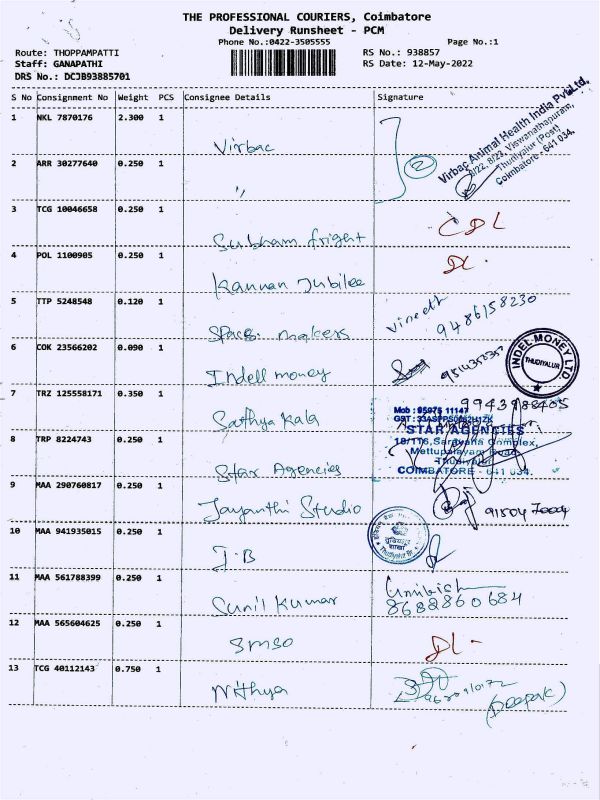 THE PROFESSIONAL COURIERS, Coimbatore
Delivery Runsheet - PCM
Phone No.:0422-3505555
Page No.:1
Route: THOPPAMPATTI
RS No.: 938857
Staff: GANAPATHI
RS Date: 12-May-2022
DRS No.: DCJB93885701
S No Consignment No Weight PCS Consignee Details Signature
1 NKL 7870176 2.300 1
Virbac
2
Virbac Animal Health India Pvt Ltd.
8/22, 8/23, Viswanathapuram,
Thudiyalur (Post)
Coimbatore - 641 034.
2 ARR 30277640 0.250 1
"
3 TCG 10046658 0.250 1
Subham fright
4 POL 1100905 0.250 1
Kannan Jubilee
DL.
5 TTP 5248548 0.120 1
Space makers
Vineeth
9486158230
6 COK 23566202 0.090 1
Indell money
INDEL MONEY LTD
THUDIYALUR
7 TRZ 125558171 0.350 1
Sathya Kala
Mob : 95975 11147
STAR AGENCIES
18/116, Saravana Complex,
Mettupalayam Road,
Thudiyalur
COIMBATORE - 641 034.
8 TRP 8224743 0.250 1
Star Agencies
9 MAA 290760817 0.250 1
Jayanthi Studio
10 MAA 941935015 0.250 1
J.B
11 MAA 561788399 0.250 1
Sunil Kumar
8682860684
12 MAA 565604625 0.250 1
SMSO
DL -
13 TCG 40112143 0.750 1
Nithya
(Deepak)